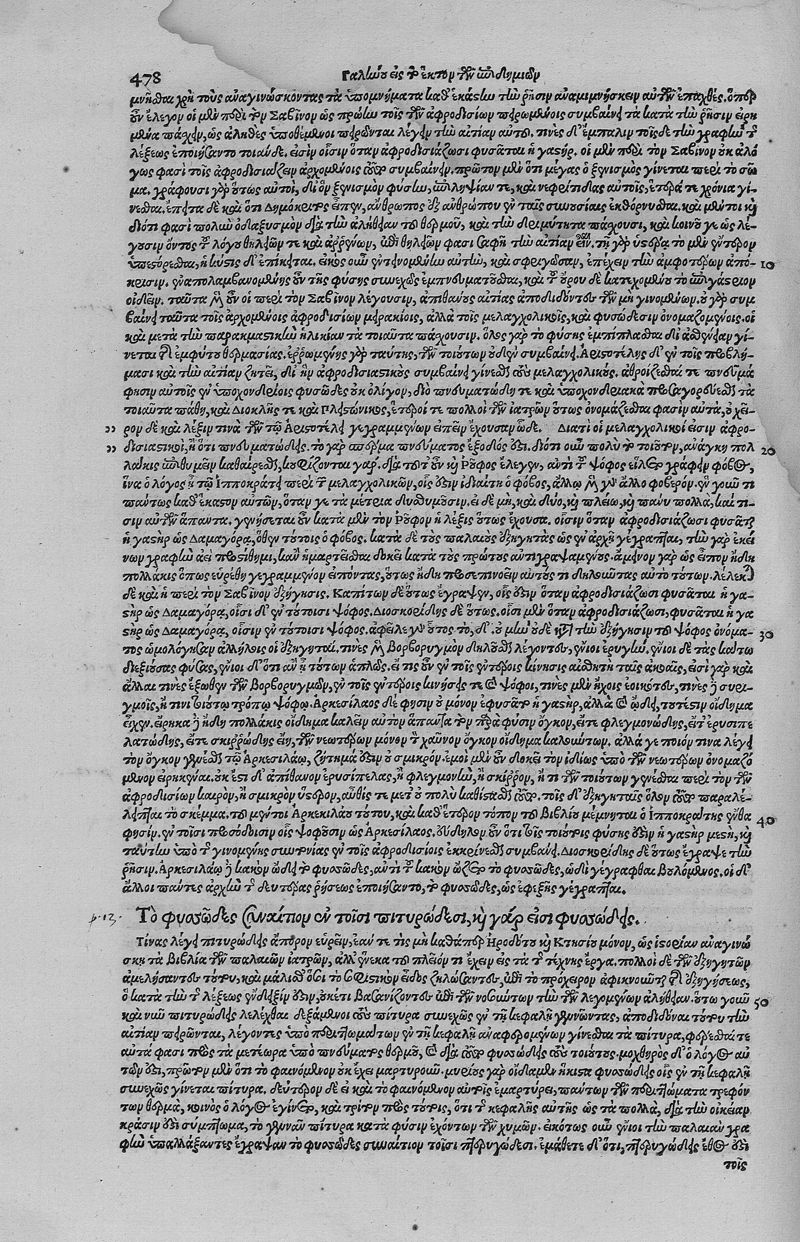 478 Γαληνοῦ εἰς τὸ ἕκτον τῶν ἐπιδημιῶν
μνῆσθαι χρὴ τοὺς ἀναγινώσκοντας τὰ ὑπομνήματα καθ' ἑκάστην τὴν ῥῆσιν ἀναμιμνήσκειν αὐτῶν ἐπαχθές. ὅπερ
οὖν ἔλεγον οἱ μὲν περὶ τὸν Σαβῖνον ὡς πρώτου τοῖς τῶν ἀφροδισίων πειρωμένοις συμβαίνει τὰ κατὰ τὴν ῥῆσιν εἰρη
μένα πάσχειν, ὡς ἀληθὲς ὑποθέμενοι πειρῶνται λέγειν τὴν αἰτίαν αὐτοῦ. τινὲς δ' ἔμπαλιν τοῖσδε τὴν γραφὴν τῆς
λέξεως ἐποιήσαντο τοιαύδε. εἰσὶν οἷσιν ὅταν ἀφροδισιάζωσι φυσᾶται ἡ γαστήρ. οἱ μὲν περὶ τὸν Σαβῖνον οὐκ ἀλό
γως φασὶ τοῖς ἀφροδισιάζειν ἀρχομένοις τοῦτο συμβαίνειν. πρῶτον μὲν ὅτι μέγας ὁ ξενισμὸς γίνεται περὶ τὸ σῶ
μα. γράφουσι γὰρ οὕτως αὐτοί, δι' ὃν ξενισμὸν φύσιν, ἐπιληψίαν τε, καὶ νεφρίτιδας αὐτοῖς, ἕτερά τε χρόνια γί
νεσθαι. ἔπειτα δὲ καὶ ὅτι Δημόκριτος εἶπεν, ἄνθρωπος ἐξ ἀνθρώπου ἐν ταῖς συνουσίαις ἐκθόρνυται. καὶ μέντοι καὶ
διότι φασὶ πολλὴν ὀδαξυσμὸν διὰ τὴν ἀλήθειαν τοῦ θερμοῦ, καὶ τὴν δριμύτητα πάσχουσι, καὶ κοινὸ γε ὡς λέ
γουσιν ὄντος τοῦ λόγου θηλειῶν τε καὶ ἀρρένων, ἐπὶ θηλειῶν φασι σαφῆ τὴν αἰτίαν εἶναι. τῇ γὰρ ὑστέρᾳ τὸ μὲν ἔντερον
ὑπεστόρεσται, ἡ κύστις δ' ἐπίκειται. εἰκὸς οὖν ἐντεινομένην αὐτήν, καὶ σφιγῶσαν, ἐπέχειν τὴν ἀμφοτέρων ἀπό- 10
κρισιν. ἐναπολαμβανομένης οὖν τῆς φύσης συνεχῶς ἐμπνευματοῦσθαι, καὶ τοῦ οὔρου δὲ κατεχομένου τὸ ἐπιγάστριον
οἰδεῖν. ταῦτα μὲν οὖν οἱ περὶ τὸν Σαβῖνον λέγουσιν, ἀπιθάνους αἰτίας ἀποδιδόντες τῶν μὴ γινομένων. οὐ γὰρ συμ
βαίνει ταῦτα τοῖς ἀρχομένοις ἀφροδισίων μειρακίοις, ἀλλὰ τοῖς μελαγχολικοῖς, καὶ φυσώδεσιν ὀνομαζομένοις. οἱ
καὶ μετὰ τὴν παρακμαστικὴν ἡλικίαν τὰ τοιαῦτα πάσχουσιν. ὅλως γὰρ τὸ φύσης ἐμπίπλασθαι δι' ἀσθένειαν γί
νεται τῆς ἐμφύτου θερμασίας. ἐρρωμένης γὰρ ταύτης, τῶν τοιούτων οὐδὲν συμβαίνει. Ἀριστοτέλης δ' ἐν τοῖς προβλή
μασι καὶ τὴν αἰτίαν ζητεῖ, δι' ἣν ἀφροδισιαστικὸς συμβαίνει γίνεσθαι τοὺς μελαγχολικούς. ἀθροίζεσθαί τε πνεῦμά
φησιν αὐτοῖς ἐν ὑποχονδρίοις φυσῶδες οὐκ ὀλίγον, διὸ πνευματώδη τε καὶ ὑποχονδριακὰ προσαγορεύεσθαι τὰ
τοιαῦτα πάθη, καὶ Διοκλῆς τε καὶ Πλειστόνικος, ἕτεροί τε πολλοὶ τῶν ἰατρῶν οὕτως ὀνομάζεσθαί φασιν αὐτά. ὀχεῖ-
,, ρον δὲ καὶ λέξιν τινὰ τῶν τῷ Ἀριστοτέλει γεγραμμένων εἰπεῖν ἔχουσαν ὧδε. Διατί οἱ μελαγχολικοὶ εἰσιν ἀφρο-
,, δισιαστικοί, ἢ ὅτι πνευματώδεις. τὸ γὰρ σπέρμα πνεύματος ἔξοδός ἐστι. διότι οὖν πολὺ τὸ τοιοῦτον, ἀνάγκη πολ 20
λάκις ἐπιθυμεῖν καθαίρεσθαι, κουφίζονται γάρ. διὰ τοῦτ' οὖν καὶ Ῥοῦφος ἔλεγεν, ἀντὶ τοῦ ψόφος εἶναι γράφειν φόβος,
ἵνα ὁ λόγος ᾖ τῷ Ἱπποκράτει περὶ τῶν μελαγχολικῶν, οἷς ἐστιν ἰδιαίτη ὁ φόβος, ἄλλῳ μὲν ἐπ' ἄλλο φοβερόν. ἐν γοῦν τι
πάντως καθ' ἕκαστον αὐτῶν, ὅταν γε τὰ μέτρια δυσθυμῶσιν. εἰ δὲ μή, καὶ δύο, καὶ πλείω, καὶ πάνυ πολλά, καί τι-
σιν αὐτῶν ἅπαντα. γενήσεται οὖν κατὰ μὲν τὸν Ῥοῦφον ἡ λέξις οὕτως ἔχουσα. οἷσιν ὅταν ἀφροδισιάζωσι φυσᾶται
ἡ γαστὴρ ὡς Δαμαγόρᾳ, ὅθεν τούτοις ὁ φόβος. κατὰ δὲ τοὺς παλαιοὺς ἐξηγητὰς ὡς ἐν ἀρχῇ γέγραπται, τὴν γὰρ ἐκεί
νων γραφὴν ἀεὶ προτίθημι, κἂν ἡμαρτῆσθαι δοκεῖ κατὰ τοὺς πρώτους ἀντιγραψαμένους. ἄμεινον γὰρ ὡς εἶπον ἤδη
πολλάκις ὅπως εὑρέθη γεγραμμένον εἰπόντας, οὕτως ἤδη προσεπινοεῖν αὐτούς τι δηλοῦντας αὐτὸ τοῦτον. λέλεκται
δὲ καὶ ἡ περὶ τὸν Σαβῖνον ἐξήγησις. Καπίτων δὲ οὕτως ἔγραψεν, οἷς ἐστιν ὅταν ἀφροδισιάζωσι φυσᾶται ἡ γα-
στὴρ ὡς Δαμαγόρᾳ, οἷσι δ' ἐν τούτοισι ψόφος. Διοσκορίδης δὲ οὕτως. οἷσι μὲν ὅταν ἀφροδισιάζωσι, φυσᾶται ἡ γα
στὴρ ὡς Δαμαγόρᾳ, οἷσιν ἐν τούτοισι ψόφος. ἀφεῖλεν οὗτος τὸ, δ'. οὐ μὴν οὐδὲ περὶ τὴν ἐξήγησιν τοῦ ψόφου ὀνόμα- 30
τος ὡμολόγησαν ἀλλήλοις οἱ ἐξηγηταί. τινὲς μὲν βορβορυγμὸν δηλοῦσθαι λέγοντες, ἔνιοι ἐρυγήν, ἔνιοι δὲ τὰς κάτω
διεξιούσας φύσας, ἔνιοι δ' ὅτι ἂν ᾖ τούτων ἁπλῶς. εἴ τις ἐν τοῖς ἐντέροις κίνησις αἰσθητὴ ταῖς ἀκοαῖς, εἰσὶ γὰρ καὶ
ἄλλαι τινὲς ἔξωθεν τῶν βορβορυγμῶν, ἐν τοῖς ἐντέροις κινήσεις τε καὶ ψόφοι, τινὲς μὲν ἤχοις ἐοικότες, τινὲς δὲ συριγ
μοῖς, ἤ τινι οὖν ἑτέρῳ τρόπῳ ψόφῳ. Ἀρκεσίλαος δέ φησιν οὐ μόνον ἐφυσᾶτο ἡ γαστήρ, ἀλλὰ καὶ ᾤδει, τουτέστιν οἴδημα
εἶχεν. εἴρηκα δὲ ἤδη πολλάκις οἴδημα καλεῖν αὐτὸν ἅπαντα τὸν παρὰ φύσιν ὄγκον, εἴτε φλεγμονώδης, εἴτ' ἐρυσιπε
λατώδης, εἴτε σκιρρώδης εἴη, τῶν νεωτέρων μόνον τὸν χαῦνον ὄγκον οἴδημα καλούντων. ἀλλά γε ποῖόν τινα λέγει
τὸν ὄγκον γενέσθαι τῷ Ἀρκεσιλάῳ, ζήτημά ἐστιν οὐ σμικρόν. ἐμοὶ μὲν οὖν δοκεῖ τὸν ἰδίως ὑπὸ τῶν νεωτέρων ὀνομαζό
μενον εἰρηκέναι. οὐκ ἔστι δ' ἀπίθανον ἐρυσίπελας, ἢ φλεγμονήν, ἢ σκίρρον, ἤ τι τῶν τοιούτων γενέσθαι περὶ τὸν τῶν
ἀφροδισίων καιρόν, ἢ σμικρὸν ὕστερον, αὖθίς τε μετ' οὐ πολὺ καθίστασθαι τοῦτο. τοῖς δ' ἐξηγηταῖς ὅλον τοῦτο παραλέ-
λειπται τὸ σκέμμα. τοῦ μέντοι Ἀρκεσιλάου τούτου, καὶ καθ' ἕτερον τόπον τοῦ βιβλίου μέμνηται ὁ Ἱπποκράτης ἔνθα 40
φησίν. ἐν τοῖσι προσόδοισιν οἷς ψοφῶσιν ὡς Ἀρκεσίλαος. εὔδηλον οὖν ὅτι τοῖς τοιούτοις φύσης ἐστὶν ἡ γαστὴρ μεστή, καὶ
ταύτην ὑπὸ τῆς γινομένης συντονίας ἐν τοῖς ἀφροδισίοις ἐκκρίνεσθαι συμβαίνει. Διοσκορίδης δὲ οὕτως ἔγραψε τὴν
ῥῆσιν. Ἀρκεσιλάῳ δὲ κακὸν ᾤδει τὸ φυσῶδες, ἀντὶ τοῦ κακὸν ὦζε τὸ φυσῶδες, ᾤδει γέγραφθαι βουλόμενος. οἱ δ'
ἄλλοι πάντες ἀρχὴν τῆς δευτέρας ῥήσεως ἐποιήσαντο, τὸ φυσῶδες, ὡς ἐφεξῆς γέγραπται.
ρ. 12. Τὸ φυσῶδες ξυναίτιον ἐν τοῖσι πιτυρώδεσι, καὶ γάρ εἰσι φυσώδεις.
Τίνας λέγει πιτυρώδεις ἄπορον εὑρεῖν, ἐάν τε τῆς μὴ καθάπερ Ἡροδότου καὶ Κτησίου μόνον, ὡς ἱστορίαν ἀναγινώ
σκῃ τὰ βιβλία τῶν παλαιῶν ἰατρῶν, ἀλλ' ἕνεκα τοῦ πλέον τι ἔχειν εἰς τὰ τῆς τέχνης ἔργα. πολλοὶ δὲ τῶν ἐξηγητῶν
ἀμελήσαντες τούτου, καὶ μάλισθ' ὅσοι τὸ σοφιστικὸν εἶδος ζηλώζαντες, ἐπὶ τὸ πρόχειρον ἀφικνοῦνται τῆς ἐξηγήσεως,
ὃ κατὰ τὴν τῆς λέξεως ἔνδειξίν ἐστιν, οὐκέτι βασανίζοντες ἐπὶ τῶν νοσούντων τὴν τῶν λεγομένων ἀλήθειαν. οὕτω γοῦν 50
καὶ νῦν πιτυρώδεις λελέχθαι δεξάμενοι τοὺς πίτυρα συνεχῶς ἐν τῇ κεφαλῇ γεννῶντας, ἀποδιδόναι τούτου τὴν
αἰτίαν πειρῶνται, λέγοντες ὑπὸ περιττωμάτων ἐν τῇ κεφαλῇ ἀναφερομένων γίνεσθαι τὰ πίτυρα, φέρεσθαί τε
αὐτά φασι πρὸς τὰ μετέωρα ὑπὸ πνεύματος θερμοῦ, καὶ διὰ τοῦτο φυσώδεις τοὺς τοιούτους. μοχθηρὸς δ' ὁ λόγος αὐ
τῶν ἐστι, πρῶτον μὲν ὅτι τὸ φαινόμενον οὐκ ἔχει μαρτυροῦν. μυρίους γὰρ οἴδαμεν ἥκιστα φυσώδεις οἷς ἐν τῇ κεφαλῇ
συνεχῶς γίνεται πίτυρα. δεύτερον δὲ εἰ καὶ τὸ φαινόμενον αὐτοῖς ἐμαρτύρει, πάντων τῶν περιττώματα τρεφόν
των θερμά, κοινὸς ὁ λόγος ἐγίνετο, καὶ τρίτον πρὸς τούτοις, ὅτι τῆς κεφαλῆς αὐτῆς ὡς τὰ πολλά, διὰ τὴν οἰκείαν
κρᾶσιν ἐστὶ σύμπτωμα, τὸ γεννᾶν πίτυρα κατὰ φύσιν ἐχόντων τῶν χυμῶν. εἰκότως οὖν ἔνιοι τὴν παλαιὰν γρα
φὴν ὑπαλλάξαντες ἔγραψαν τὸ φυσῶδες συναίτιον τοῖσι πτερυγώδεσι. ἐμάθετε δ' ὅτι, πτερυγώδης ἔθος ἐστὶ
τοῖς